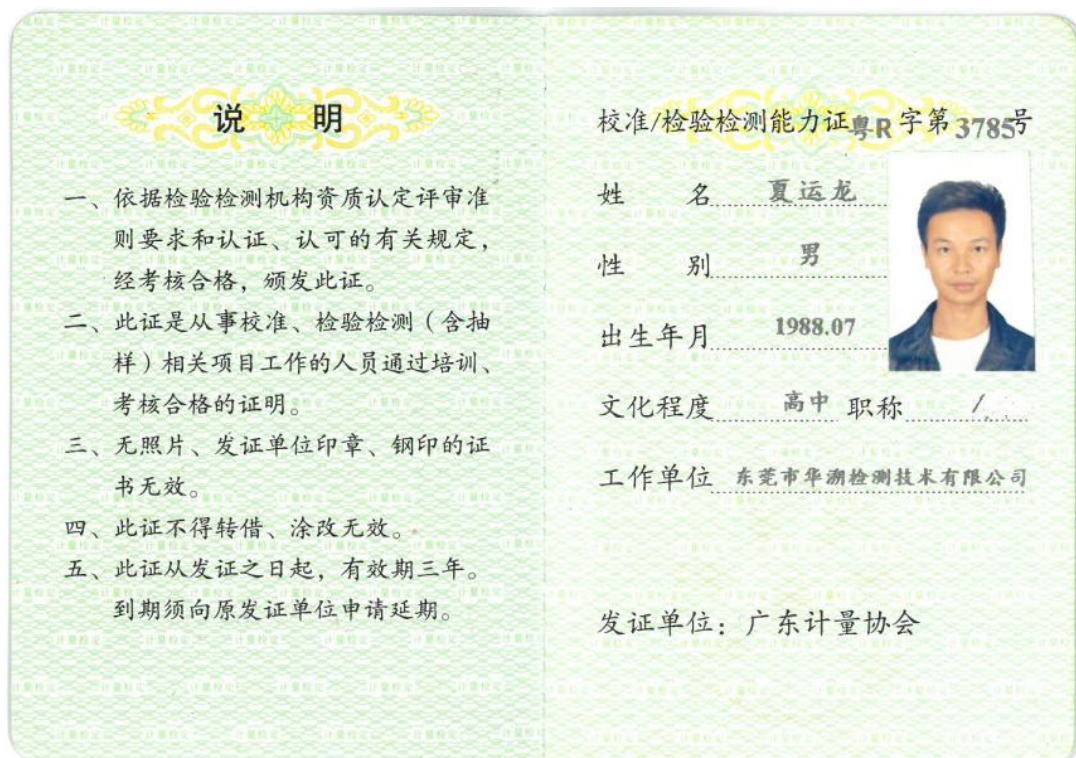 说 明
一、依据检验检测机构资质认定评审准
则要求和认证、认可的有关规定，
经考核合格，颁发此证。
二、此证是从事校准、检验检测（含抽
样）相关项目工作的人员通过培训、
考核合格的证明。
三、无照片、发证单位印章、钢印的证
书无效。
四、此证不得转借、涂改无效。
五、此证从发证之日起，有效期三年。
到期须向原发证单位申请延期。
校准/检验检测能力证粤R字第3785号
姓 名 夏运龙
性 别 男
出生年月 1988.07
文化程度 高中 职称 /
工作单位 东莞市华溯检测技术有限公司
发证单位：广东计量协会